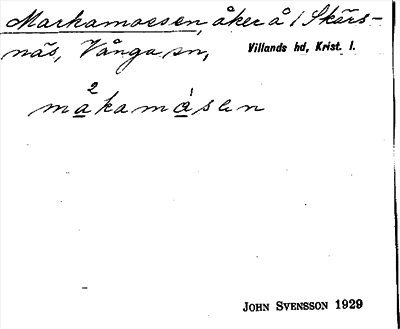 Markamossen, åker å 1 Skärs-
näs, Vånga sn, Villands hd, Krist. l.
2 1
makamåsen
JOHN SVENSSON 1929